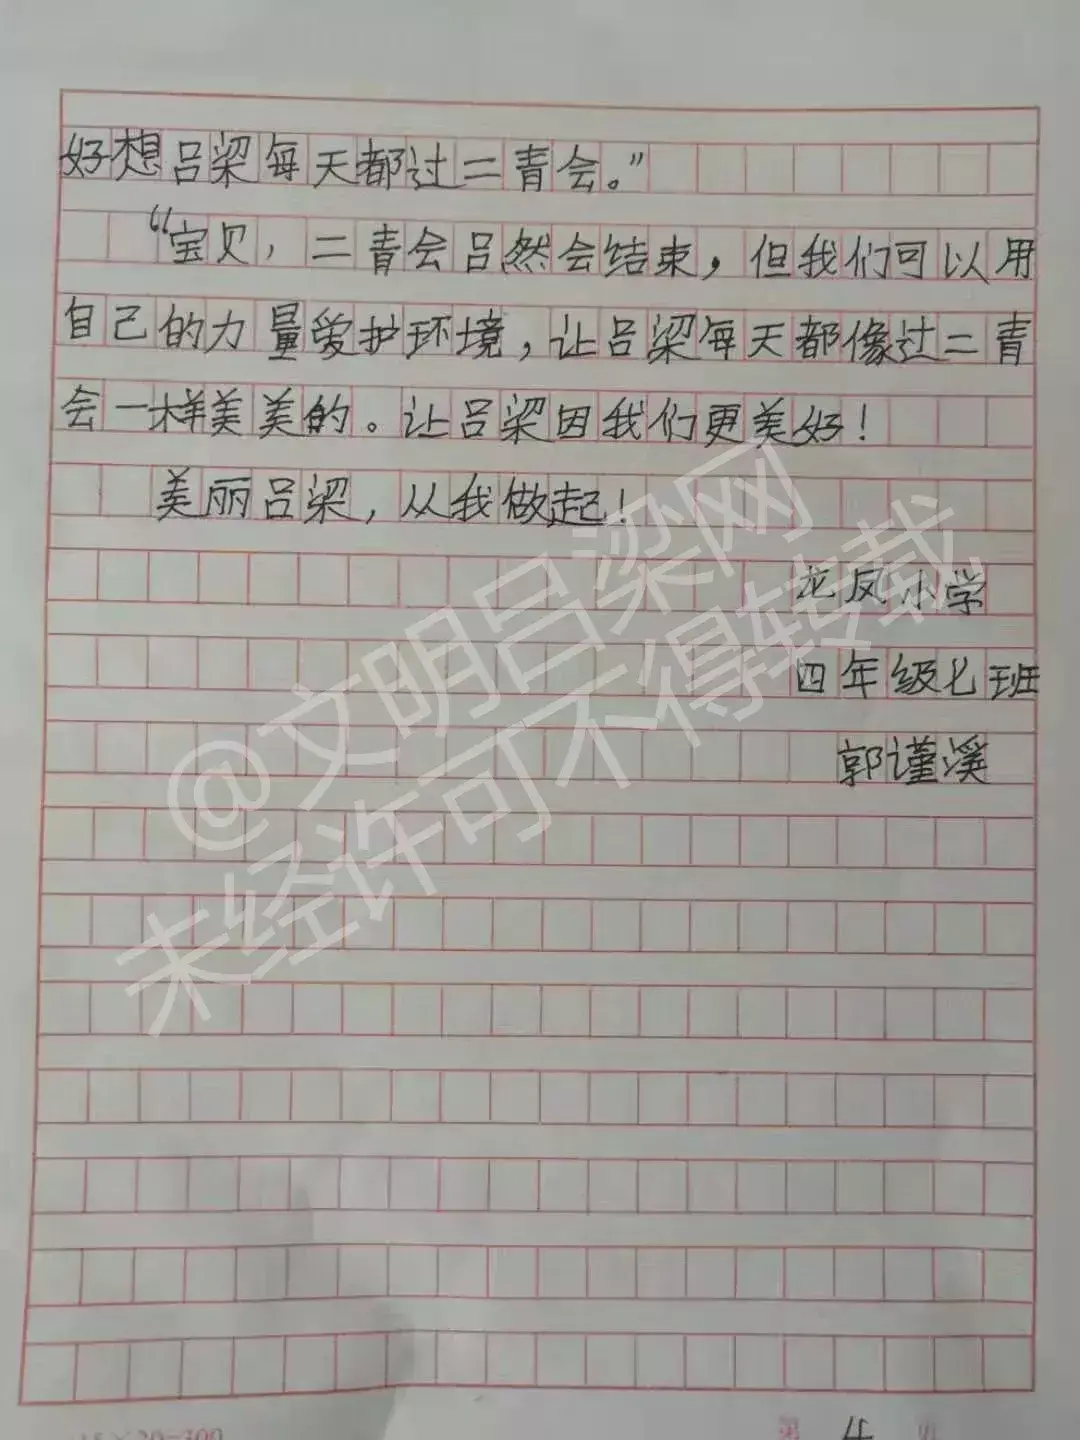 好想吕梁每天都过二青会。”
“宝贝,二青会吕然会结束,但我们可以用
自己的力量爱护环境,让吕梁每天都像过二青
会一样美美的。让吕梁因我们更美好!
美丽吕梁,从我做起!
龙凤小学
四年级七班
郭谨溪
@文明吕梁网
未经许可不得转载
15×20=300
第 4 页